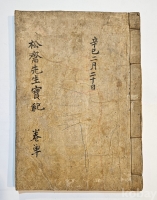 辛巳二月二十日
松齋先生實紀 卷單